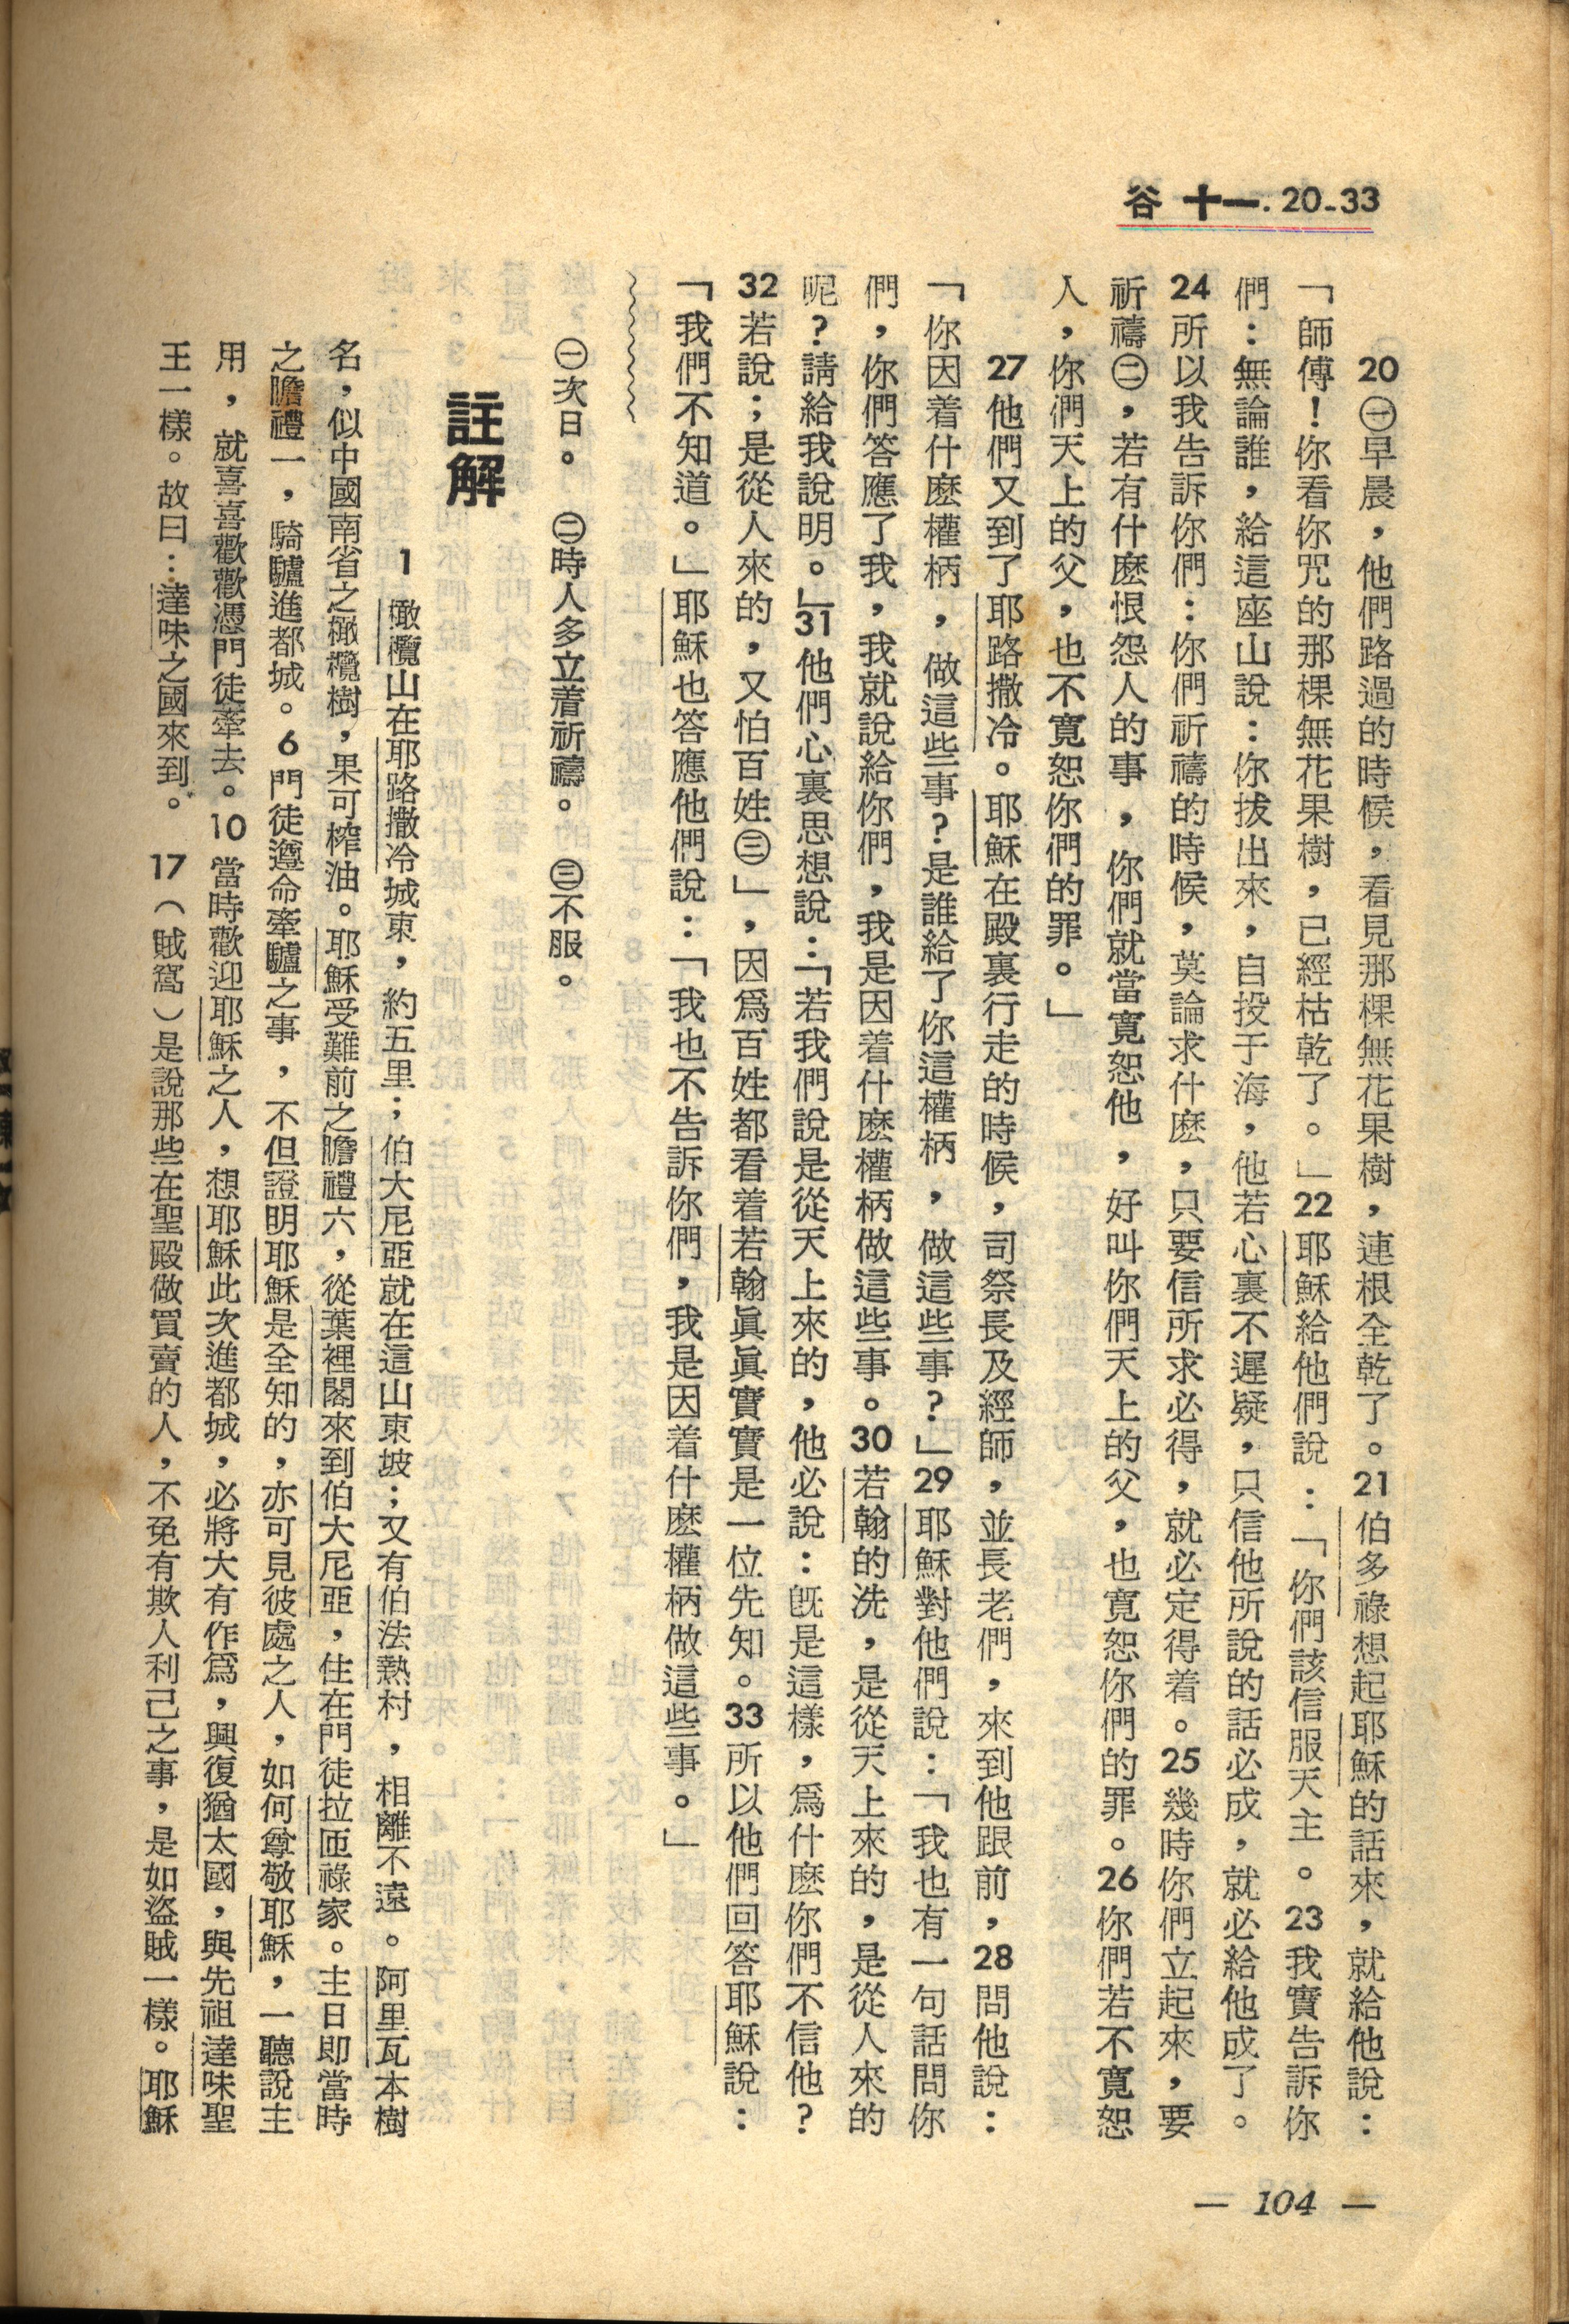 谷 十一. 20-33
20㊀早晨，他們路過的時候，看見那棵無花果樹，連根全乾了。21伯多祿想起耶穌的話來，就給他說：
「師傅！你看你咒的那棵無花果樹，已經枯乾了。」22耶穌給他們說：「你們該信服天主。23我實告訴你
們：無論誰，給這座山說：你拔出來，自投于海，他若心裏不遲疑，只信他所說的話必成，就必給他成了。
24所以我告訴你們：你們祈禱的時候，莫論求什麽，只要信所求必得，就必定得着。25幾時你們立起來，要
祈禱㊁，若有什麽恨怨人的事，你們就當寬恕他，好叫你們天上的父，也寬恕你們的罪。26你們若不寬恕
人，你們天上的父，也不寬恕你們的罪。」
27他們又到了耶路撒冷。耶穌在殿裏行走的時候，司祭長及經師，並長老們，來到他跟前，28問他說：
「你因着什麽權柄，做這些事？是誰給了你這權柄，做這些事？」29耶穌對他們說：「我也有一句話問你
們，你們答應了我，我就說給你們，我是因着什麽權柄做這些事。30若翰的洗，是從天上來的，是從人來的
呢？請給我說明。」31他們心裏思想說：「若我們說是從天上來的，他必說：既是這樣，爲什麽你們不信他？
32若說；是從人來的，又怕百姓㊂」，因爲百姓都看着若翰眞眞實實是一位先知。33所以他們回答耶穌說：
「我們不知道。」耶穌也答應他們說：「我也不告訴你們，我是因着什麽權柄做這些事。」
㊀次日。　㊁時人多立着祈禱。　㊂不服。
註解
1橄欖山在耶路撒冷城東，約五里；伯大尼亞就在這山東坡；又有伯法熱村，相離不遠。阿里瓦本樹
名，似中國南省之橄欖樹，果可榨油。耶穌受難前之瞻禮六，從葉裡閣來到伯大尼亞，住在門徒拉匝祿家。主日即當時
之瞻禮一，騎驢進都城。6門徒遵命牽驢之事，不但證明耶穌是全知的，亦可見彼處之人，如何尊敬耶穌，一聽說主
用，就喜喜歡歡憑門徒牽去。10當時歡迎耶穌之人，想耶穌此次進都城，必將大有作爲，興復猶太國，與先祖達味聖
王一樣。故曰：達味之國來到。17（賊窩）是說那些在聖殿做買賣的人，不免有欺人利己之事，是如盜賊一樣。耶穌
— 104 —